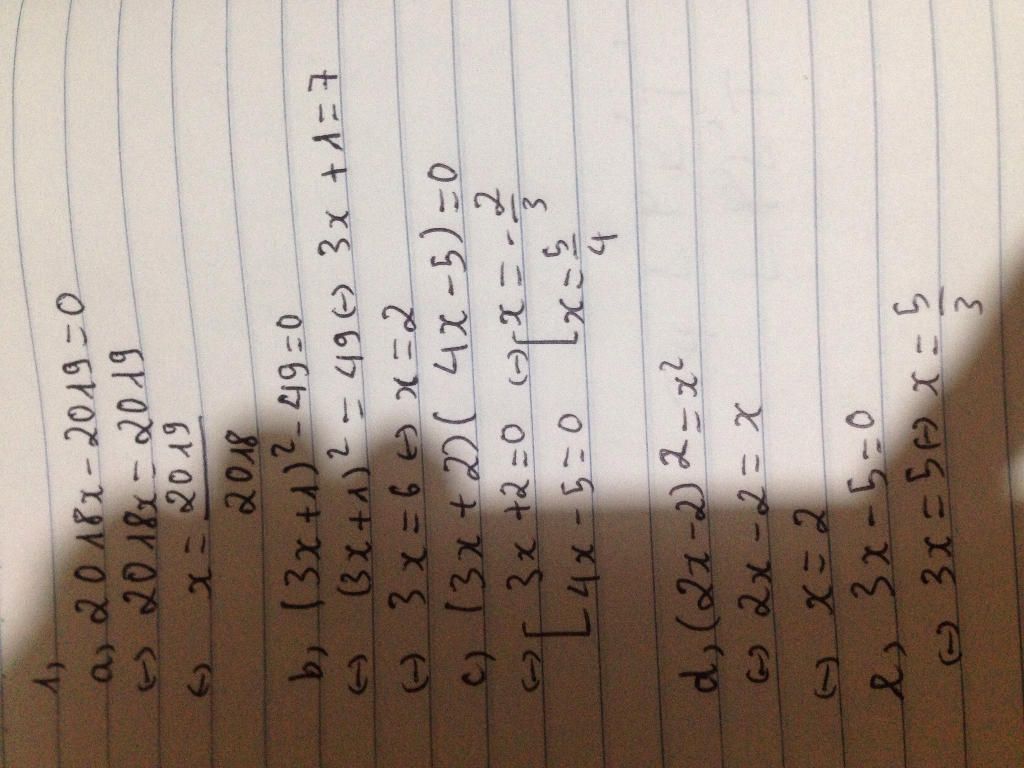 1,
a, 2018x - 2019 = 0
↔ 2018x = 2019
↔ x = 2019/2018
b, (3x+1)² - 49 = 0
↔ (3x+1)² = 49 ↔ 3x + 1 = 7
↔ 3x = 6 ↔ x = 2
c, (3x + 2)(4x - 5) = 0
↔ [3x + 2 = 0 ↔ [x = -2/3
[4x - 5 = 0 [x = 5/4
d, (2x - 2)2 = x²
↔ 2x - 2 = x
↔ x = 2
e, 3x - 5 = 0
↔ 3x = 5 ↔ x = 5/3